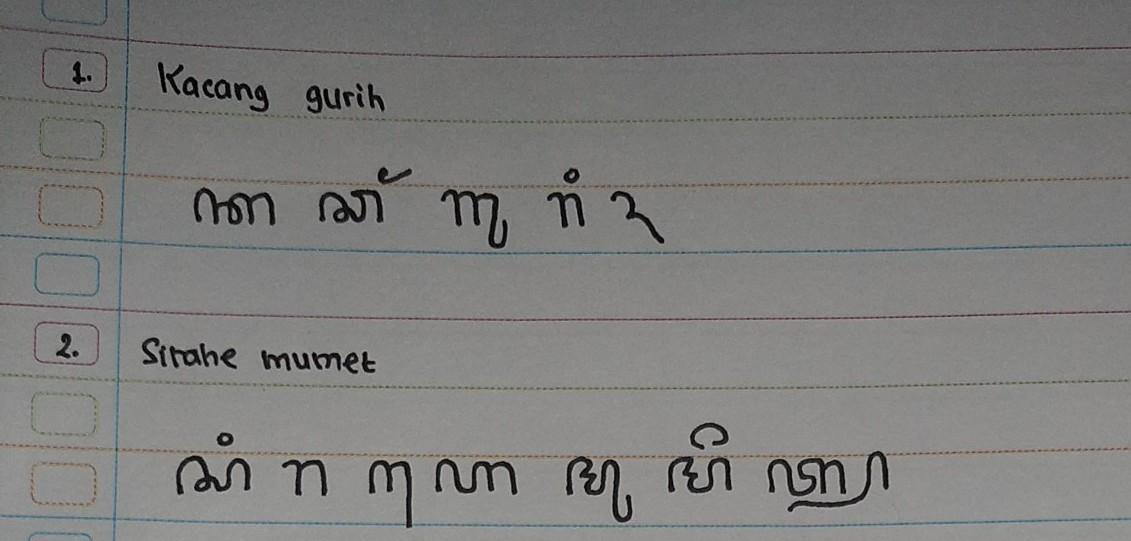 1. Kacang gurih
ꦏ ꦕꦁ ꦒꦸ ꦫꦶ ꦃ
2. Sirahe mumet
ꦱꦶ ꦫ ꦲꦺ ꦩꦸ ꦩꦼ ꦠ꧀